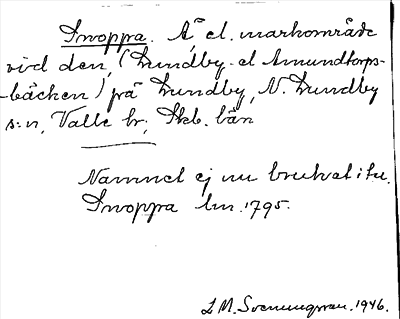 Snoppa. Å el. markområde
vid den, (Lundby- el Amundtorps-
-bäcken) på Lundby, N. Lundby
s:n, Valle hr; Skb. län
Namnet ej nu brukat i tu.
Snoppa lm. 1795.
L M. Svenungsson. 1946.